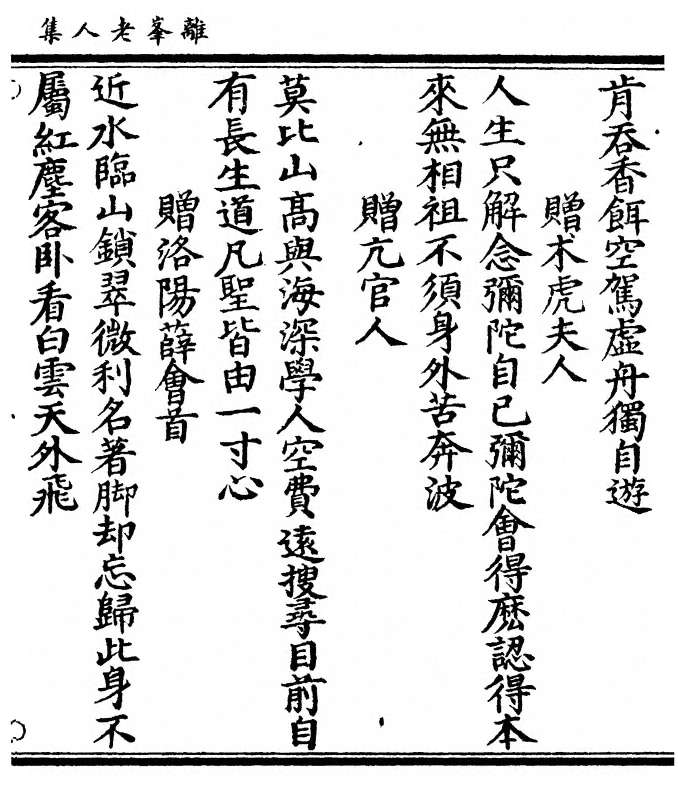 離峯老人集
肯吞香餌空駕虛舟獨自遊
贈术虎夫人
人生只解念彌陀自己彌陀會得麽認得本
來無相祖不須身外苦奔波
贈亢官人
莫比山高與海深學人空費遠搜尋目前自
有長生道凡聖皆由一寸心
贈洛陽薛會首
近水臨山鎖翠微利名著脚却忘歸此身不
屬紅塵客卧看白雲天外飛